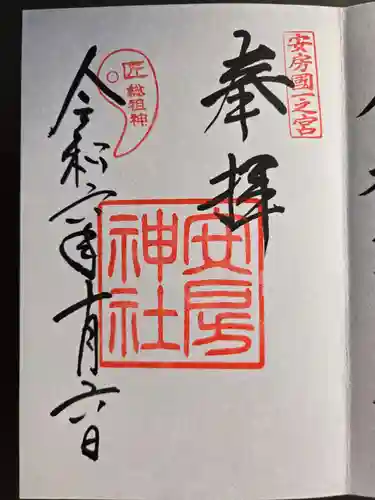 安房國一之宮
奉拝
安房
神社
匠
総祖神
令和六年十月六日